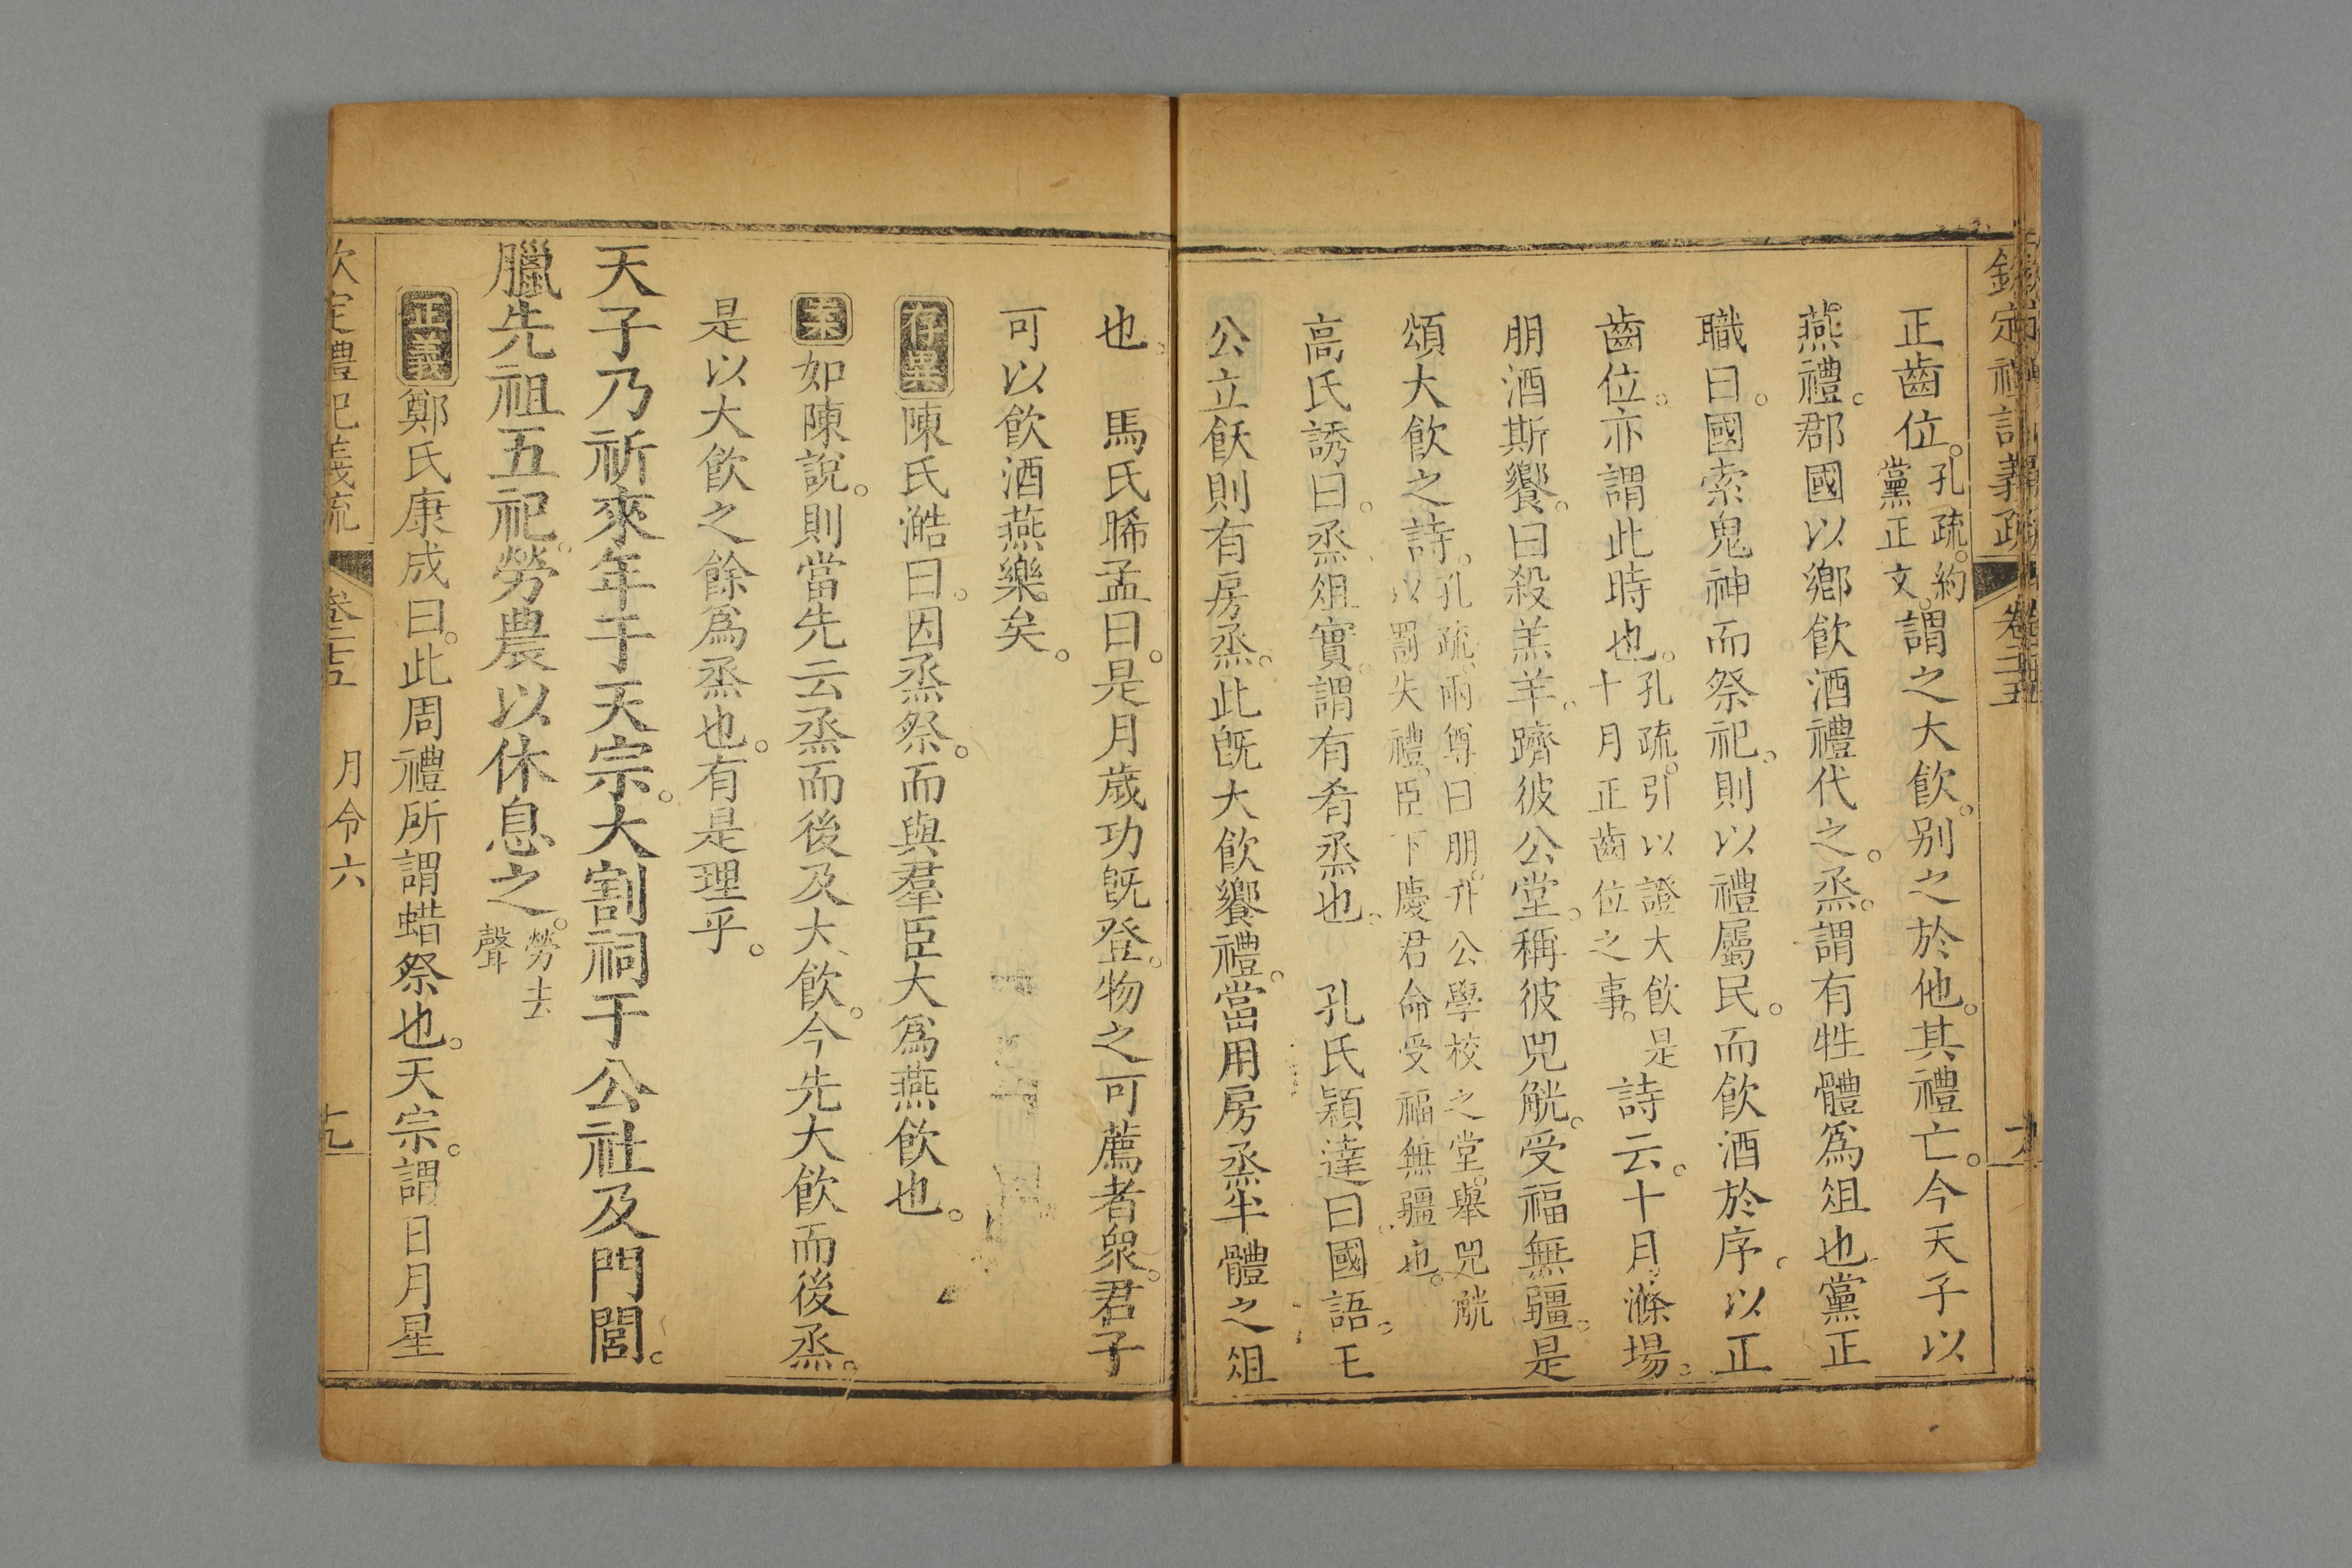 欽定禮記義疏 卷二十五
正齒位。孔疏。約黨正文。謂之大飲。别之於他。其禮亡。今天子以
燕禮。郡國以鄉飲酒禮代之。烝。謂有牲體爲俎也黨正
職曰。國索鬼神而祭祀。則以禮屬民。而飲酒於序。以正
齒位。亦謂此時也。孔疏。引以證大飲是十月正齒位之事。詩云。十月滌場。
朋酒斯饗。曰殺羔羊。躋彼公堂。稱彼兕觥。受福無疆。是
頌大飲之詩。孔疏、兩尊曰朋。升公學校之堂。舉兕觥以罰失禮。臣下慶君命受福無疆也。
高氏誘曰。烝俎實。謂有肴烝也。 孔氏穎達曰。國語。王
公立飫則有房烝。此旣大飲饗禮。當用房烝半體之俎
也。 馬氏晞孟曰。是月歲功旣登。物之可薦者衆。君子
可以飲酒燕樂矣。
存異陳氏澔曰。因烝祭。而與羣臣大爲燕飲也。
案如陳說。則當先云烝而後及大飲。今先大飲而後烝。
是以大飲之餘爲烝也。有是理乎。
天子乃祈來年于天宗。大割祠于公社及門閭。
臘先祖五祀。勞農以休息之。勞去聲
正義鄭氏康成曰。此周禮所謂蜡祭也。天宗。謂日月星
欽定禮記義疏 卷二十五 月令六 十九